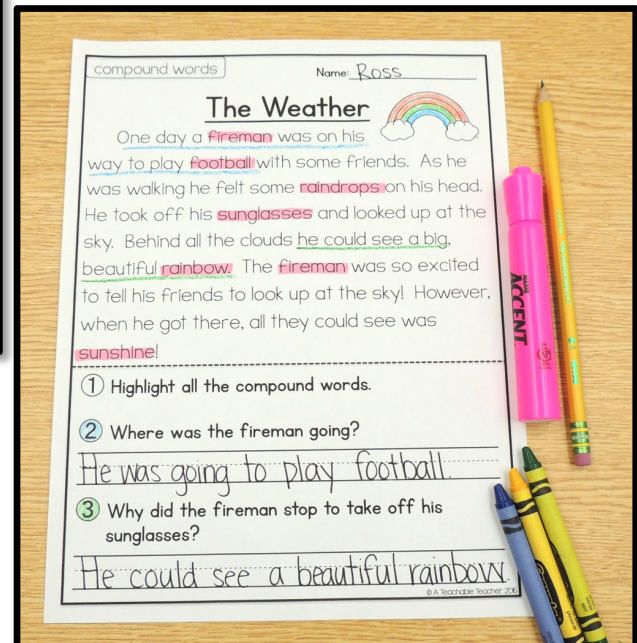 compound words
Name: Ross
The Weather
One day a fireman was on his
way to play football with some friends. As he
was walking he felt some raindrops on his head.
He took off his sunglasses and looked up at the
sky. Behind all the clouds he could see a big,
beautiful rainbow. The fireman was so excited
to tell his friends to look up at the sky! However,
when he got there, all they could see was
sunshine!
1 Highlight all the compound words.
2 Where was the fireman going?
He was going to play football.
3 Why did the fireman stop to take off his
sunglasses?
He could see a beautiful rainbow.
© A Teachable Teacher 2015
ACCENT